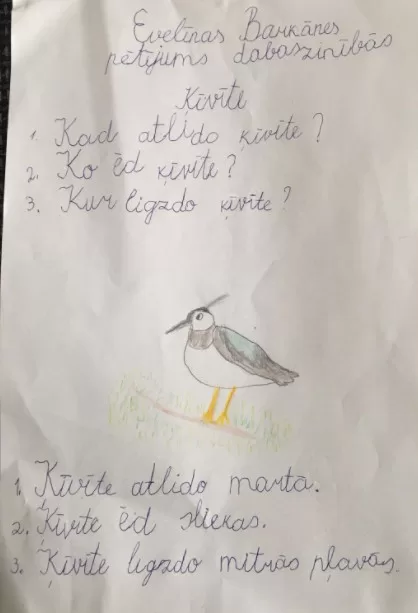 Evelīnas Barkānes
pētījums dabaszinībās
Ķīvīte
1. Kad atlido ķīvīte?
2. Ko ēd ķīvīte?
3. Kur ligzdo ķīvīte?
1. Ķīvīte atlido martā.
2. Ķīvīte ēd sliekas.
3. Ķīvīte ligzdo mitrās pļavās.